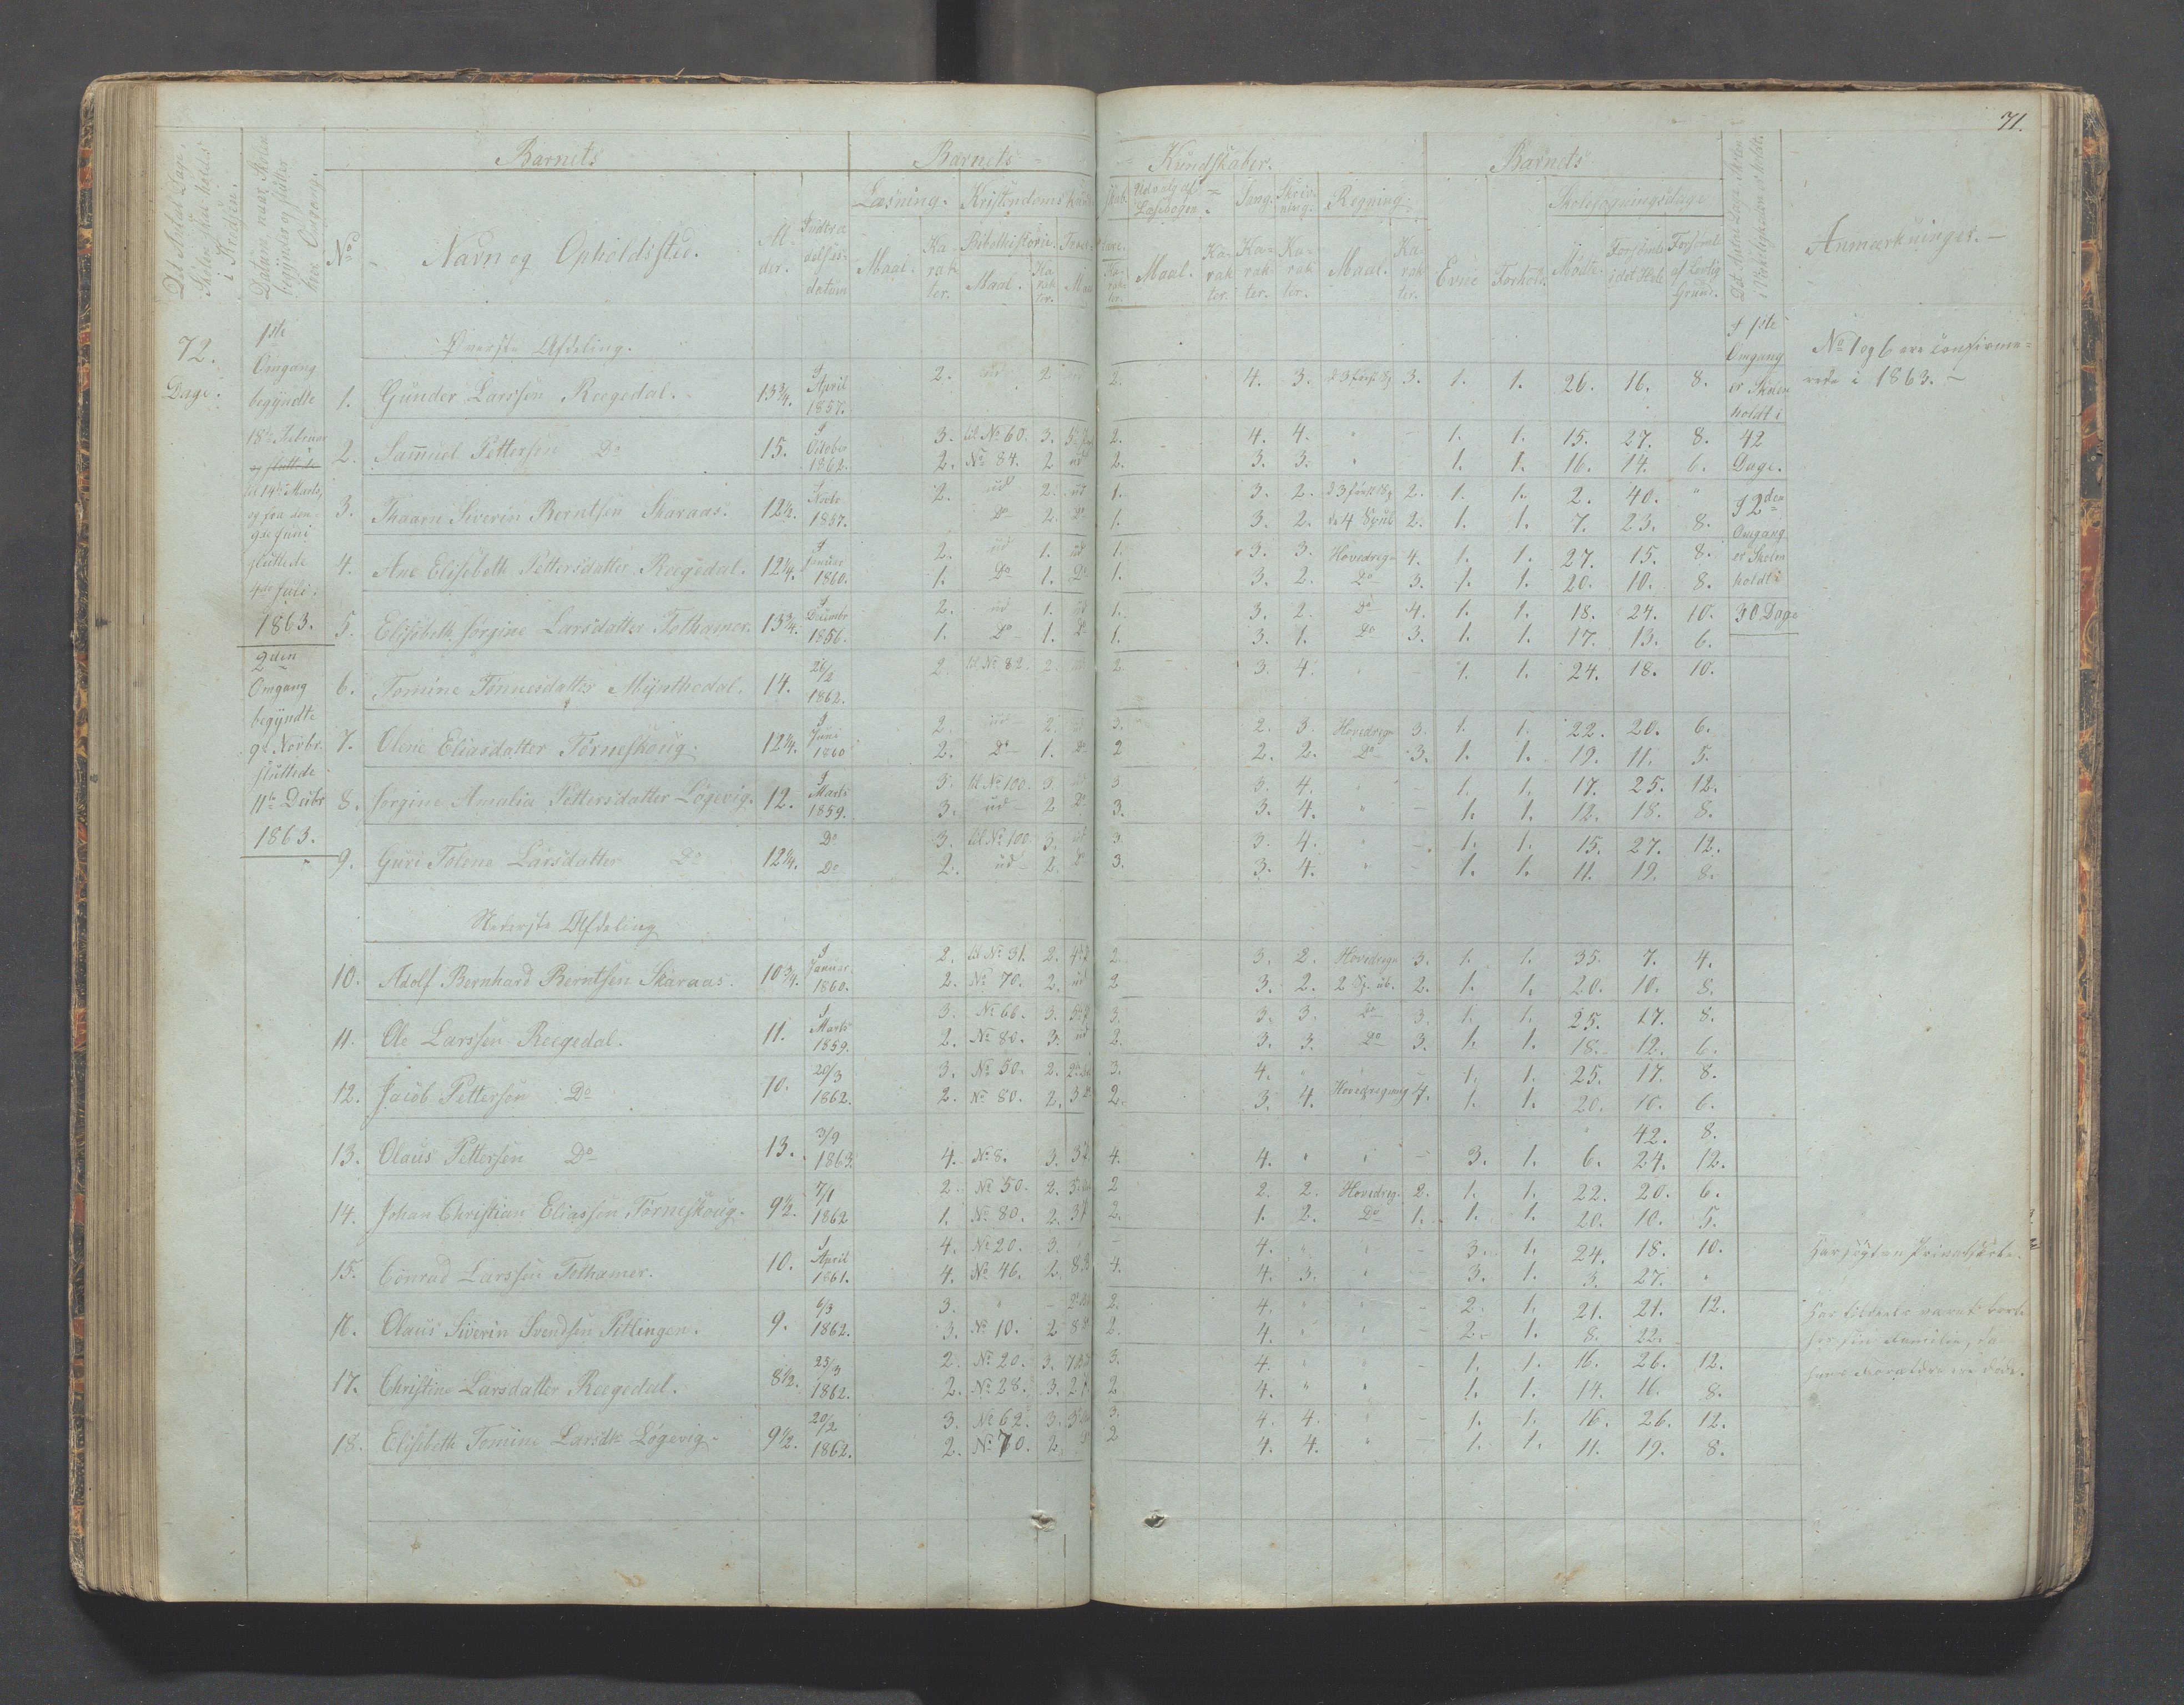 71.
Barnets
Barnets
Kundskaber.
Barnets
Det Antal Dage Skolen skal holdes i Kredsen.
Datum, naar Skolen begynder og slutter hver Omgang.
No
Navn og Opholdssted.
Al-
der.
Læsning. Kristendoms
Udvalg af Læsebogen.
Sang. Skriv-
ning.
Regning.
Skolesøgningsdage
Maal. Ka-
rak-
ter.
Bibelhistorie.
Maal. Ka-
rak-
ter.
Maal. Ka-
rak-
ter. Ka-
rak-
ter. Ka-
rak-
ter. Maal. Ka-
rak-
ter.
Evne Forhold. Mødte. Forsømte i det Hele Forsømte af Lovlig Grund.
Anmærkninger. —
72.
Dage.
1ste
Omgang
begyndte
18de Februar
og sluttede
til 14de Marts,
og fra den
9de Juni
sluttede
4de Juli.
1863.
2den
Omgang
begyndte
9de Novbr.
sluttede
11te Decbr
1863.
Øverste Afdeling.
1. Gunder Larssen Reegedal. 13¾. April 1857. 2. ud 2. 2. 4. 3. 3. 1. 1. 26. 16. 8.
2. Samuel Pettersen Do 15. October 1862. 3. til No 60. 3. 2. 4. 4. " 1. 1. 15. 27. 8.
2. No 84. 2 ud 2. 3. 3. " 1. 1. 16. 14. 6.
3. Thaarn Siverin Berntsen Skaraas. 12½. Novbr 1857. 2. ud 2. ud 1. 3. 2. 2. 1. 1. 2. 40. "
Do 2. Do 1. 3. 2. 2. 1. 1. 7. 23. 8.
4. Ane Elisebeth Pettersdatter Reegedal. 12¼. Januar 1860. 2. ud 1. ud 1. 3. 3. Hovedregn 4. 1. 1. 27. 15. 8.
1. Do 1. Do 1. 3. 2. Do 3. 1. 1. 20. 10. 8.
5. Elisebeth Jørgine Larsdatter Tothamer. 13¾. Decembr 1856. 2. ud 1. ud 1. 3. 2. Do 4. 1. 1. 18. 24. 10.
1. Do 1. Do 1. 3. 1. Do 3. 1. 1. 17. 13. 6.
6. Tomine Tønnesdatter Mynthedal. 14. 26/2 1862. 2. til No 82. 2. 2 3. 4. " 1. 1. 24. 18. 10.
7. Olene Eliasdatter Törneskoug. 12¼. Juni 1860 2. ud 2. 3. 2. 3. Hovedregn 3. 1. 1. 22. 20. 6.
2. Do 1. Do 2 2. 2. Do 3. 1. 1. 19. 11. 5.
8. Jørgine Amalia Pettersdatter Løgevig. 12. Marts 1859. 3. til No 100. 3. 3 3. 4. " 1. 1. 17. 25. 12.
3. ud 2 Do 3. 3. 4. " 1. 1. 12. 18. 8.
9. Guri Tolene Larsdatter Do 12¼. Do Do 3. til No 100. 3. 3. 3. 4. " 1. 1. 15. 27. 12.
2. ud 2. Do 3. 3. 4. " 1. 1. 11. 19. 8.
Nederste Afdeling
10. Adolf Bernhard Berntsen Skaraas. 10¾. Januar 1860. 2. til No 31. 2. 2 3. 2. Hovedregn 3. 1. 1. 35. 7. 4.
2. No 70. 2. ud 2 3. 2. 2. 1. 1. 20. 10. 8.
11. Ole Larssen Reegedal. 11. Marts 1859. 3. No 66. 3. 3. 3. 3. Do 3. 1. 1. 25. 17. 8.
2. No 80. 3. ud 2. 3. 3. Do 3. 1. 1. 18. 12. 6.
12. Jacob Pettersen Do 10. 20/3 1862. 3. No 50. 2. 3. 4. " 1. 1. 25. 17. 8.
2. No 80. 2. 2. 3. 4. Hovedregning 4. 1. 1. 20. 10. 6.
13. Olaus Pettersen Do 13. 3/9 1863. " 42. 8.
4. No 8. 3. 4. 4. " " 3. 1. 6. 24. 12.
14. Johan Christian Eliassen Törneskoug. 9½. 7/1 1862 2. No 50. 2. 2 2. 2. Hovedreg. 2. 1. 1. 22. 20. 6.
1. No 80. 2. 2. 1. 2. Do 1. 1. 1. 20. 10. 5.
15. Conrad Larssen Tothamer. 10. April 1861. 4. No 20. 3. 4. " " 3. 1. 24. 18. 10.
4. No 46. 2. 4. 4. 3. " 3. 1. 3. 27. "
16. Olaus Siverin Svendsen Petlingen. 9. 6/3 1862. 3. " 2. 4. " " 2. 1. 21. 21. 12.
3. No 10. 2 2. 4. " " 2. 1. 8. 22.
17. Christine Larsdatter Reegedal. 8½. 23/3 1862. 2. No 20. 3. 3. 4. " " 1. 1. 16. 26. 12.
2. No 28. 3. 2 4. " " 1. 1. 14. 16. 8.
18. Elisebeth Tomine Larsdtr Løgevig. 9½. 20/2 1862. 3. No 62. 3. 3. 4. 4. " 1. 1. 16. 26. 12.
2. No 70. 2. 2 4. 4. " 1. 1. 11. 19. 8.
I 1ste
Omgang
er Skolen
holdt i
42
Dage.
I 2den
Omgang
er Skolen
holdt i
30 Dage
No 1 og 6 ere confirme-
rede i 1863. —
Har søgt en Privatskole.